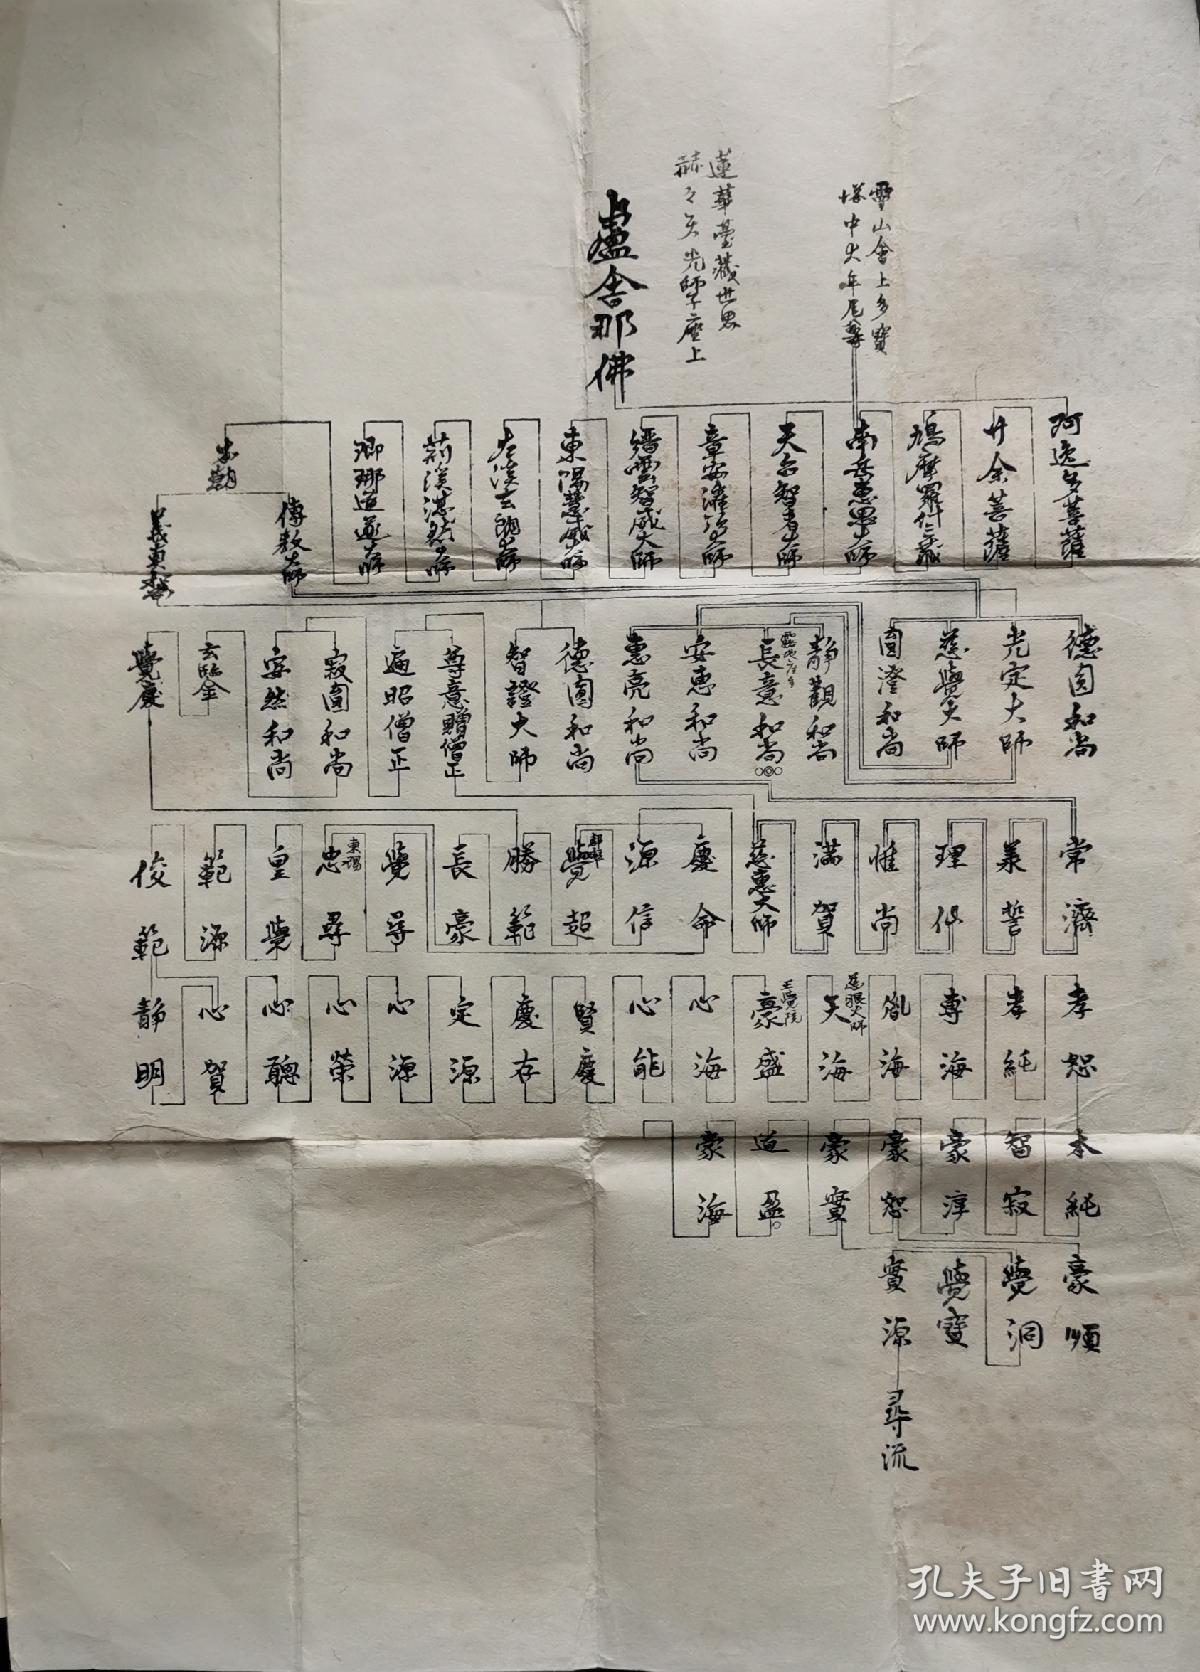 靈山會上多寶
塔中大牟尼尊
蓮華臺藏世界
赫々天光師子座上
盧舍那佛
阿逸多菩薩
廾余菩薩
鳩摩羅什三藏
南岳惠思大師
天台智者大師
章安灌頂大師
縉雲智威大師
東陽慧威大師
左溪玄朗大師
荊溪湛然大師
瑯琊道邃大師
本朝
傳教大師
義真
德圓和尚
光定大師
慈覺大師
圓澄和尚
靜觀和尚
長意和尚
安惠和尚
惠亮和尚
德圓和尚
智證大師
尊意贈僧正
遍昭僧正
寂圓和尚
安然和尚
玄
覺慶
常濟
慕誓
理仙
惟尚
滿賀
慈惠大師
慶命
源信
覺超
勝範
長豪
覺尋
東陽
忠尋
皇覺
範源
俊範
孝恕
孝純
專海
胤海
慈眼大師
天海
正覺院
豪盛
心海
心能
賢慶
慶存
定源
心源
心榮
心聰
心賀
靜明
本純
智寂
豪淳
豪恕
豪實
道盈
豪海
豪順
覺洞
覺寶
實源
尋流
孔夫子旧書网
www.kongfz.com